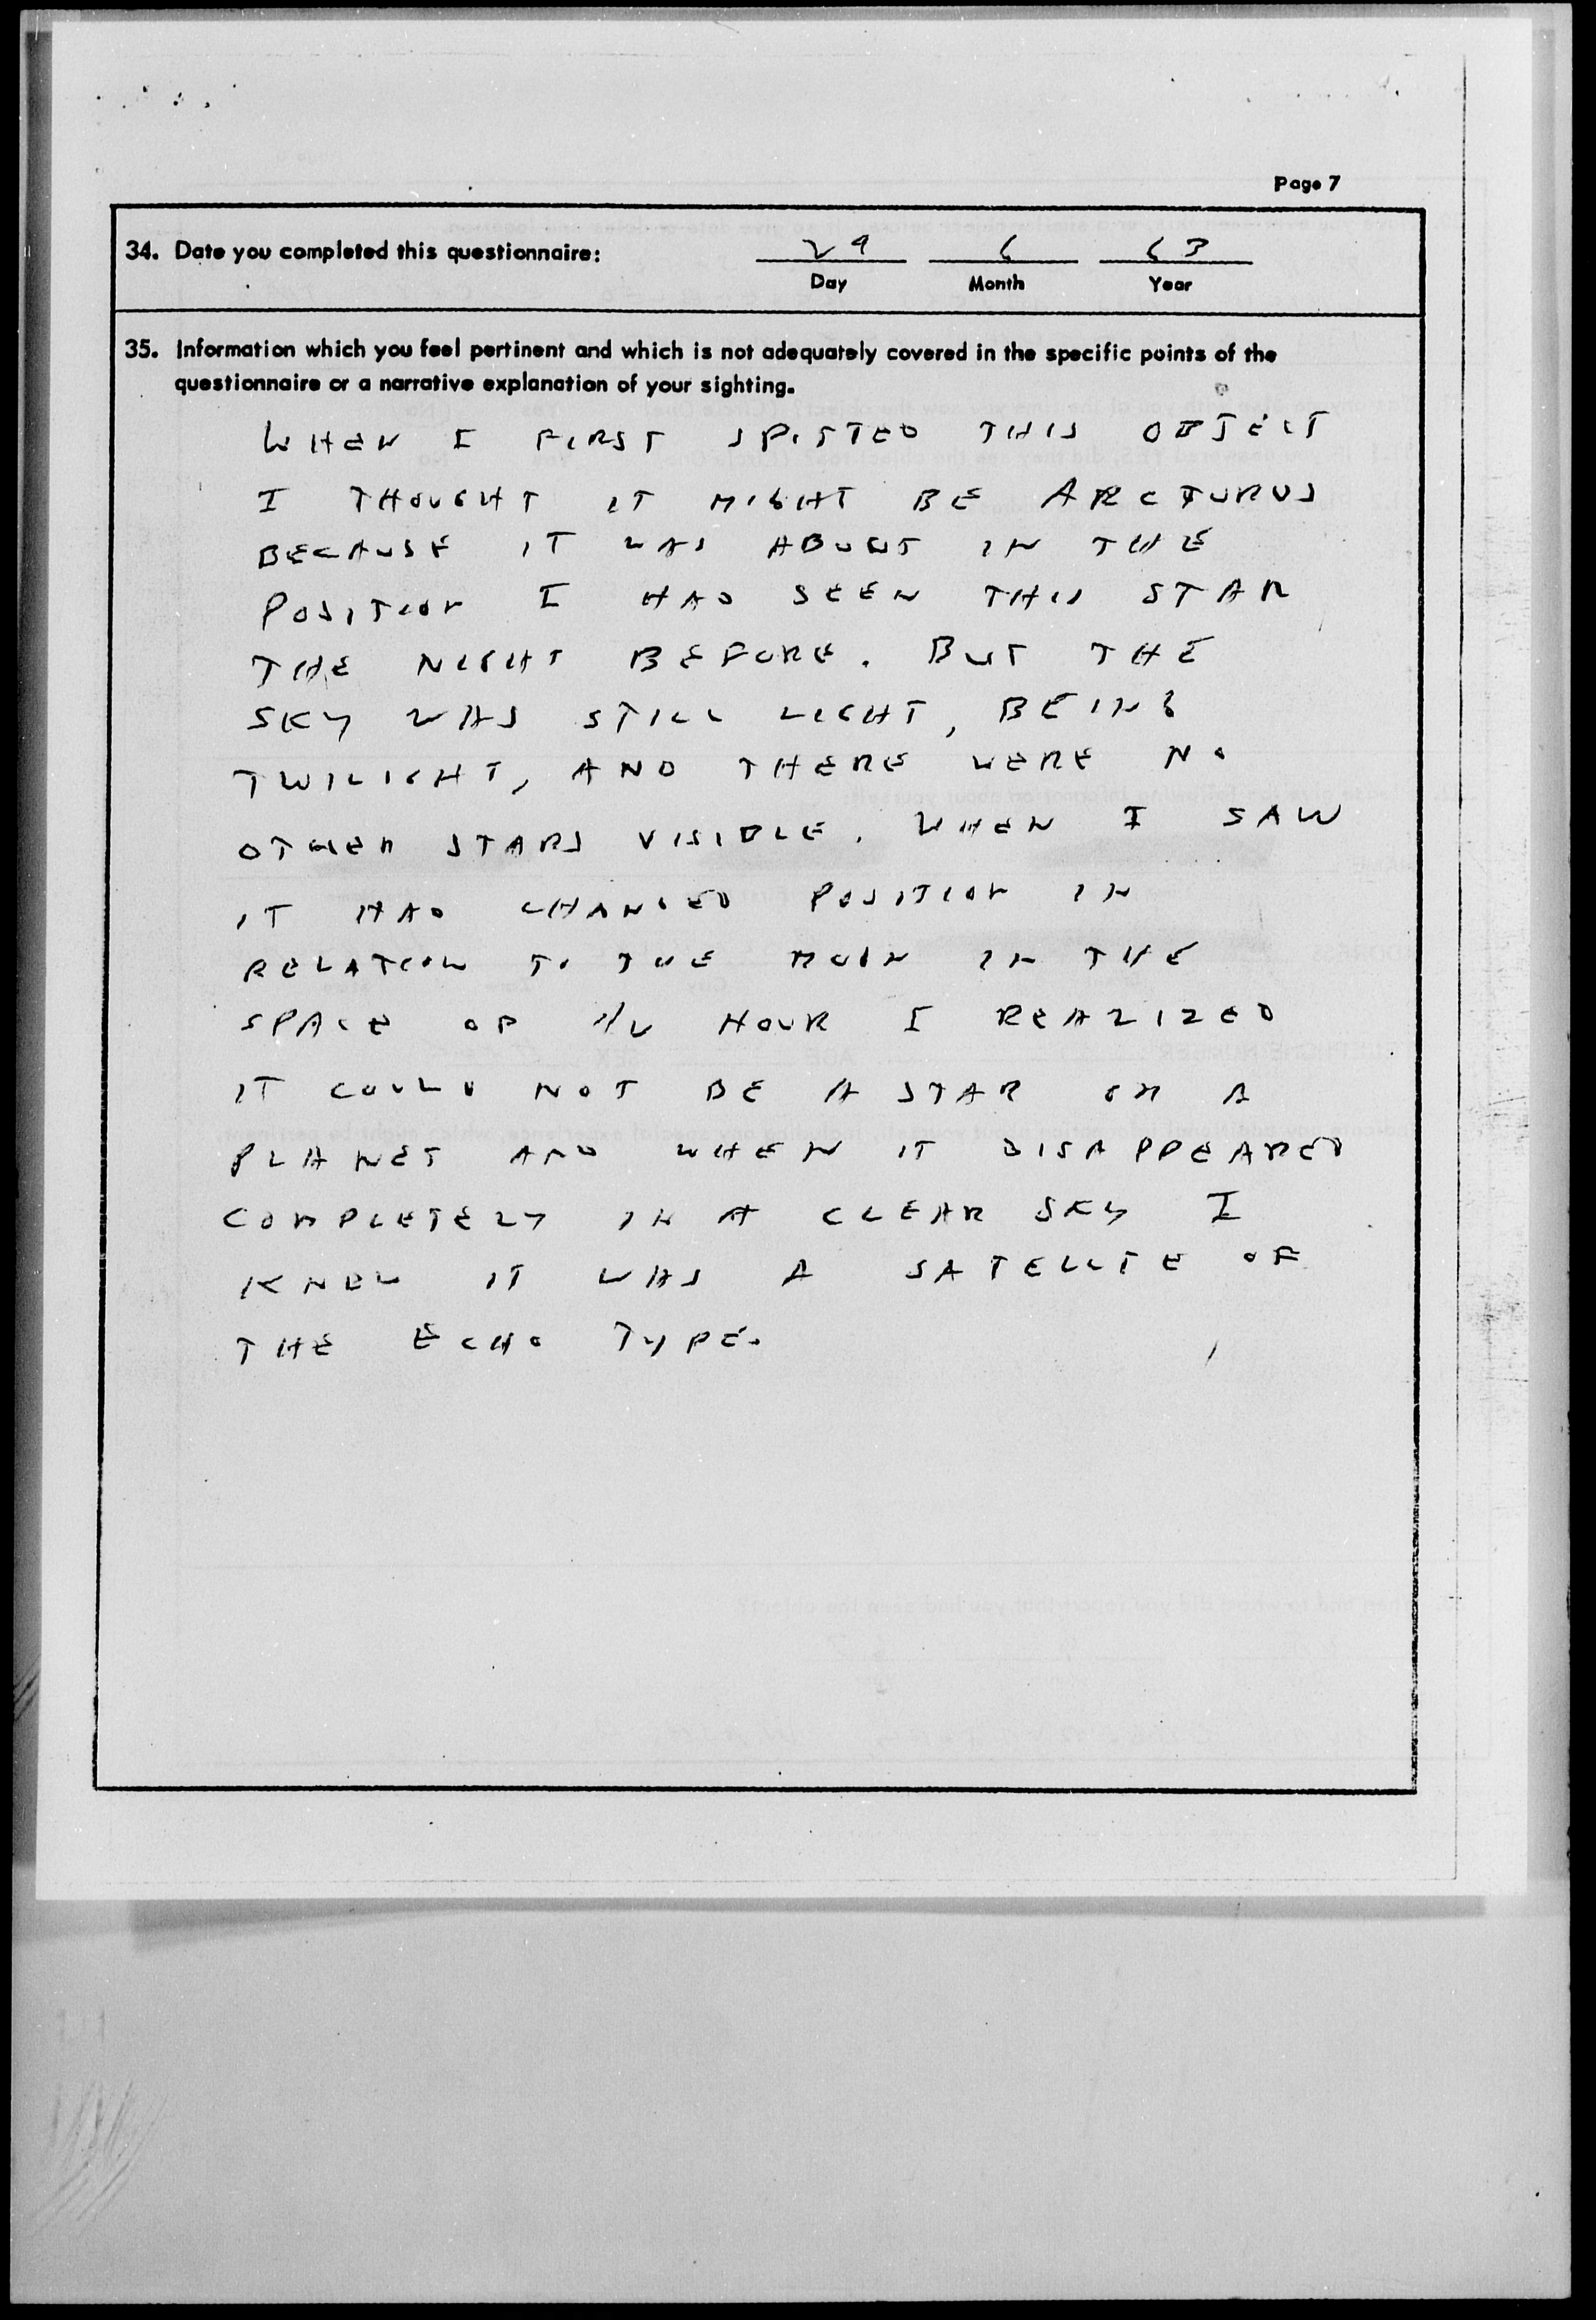 Page 7
34. Date you completed this questionnaire: 29 6 63
Day Month Year
35. Information which you feel pertinent and which is not adequately covered in the specific points of the
questionnaire or a narrative explanation of your sighting.
WHEN I FIRST SPOTTED THIS OBJECT
I THOUGHT IT MIGHT BE ARCTURUS
BECAUSE IT WAS ABOUT IN THE
POSITION I HAD SEEN THIS STAR
THE NIGHT BEFORE. BUT THE
SKY WAS STILL LIGHT, BEING
TWILIGHT, AND THERE WERE NO
OTHER STARS VISIBLE. WHEN I SAW
IT HAD CHANGED POSITION IN
RELATION TO THE MOON IN THE
SPACE OF 1/2 HOUR I REALIZED
IT COULD NOT BE A STAR OR A
PLANET AND WHEN IT DISAPPEARED
COMPLETELY IN A CLEAR SKY I
KNEW IT WAS A SATELLITE OF
THE ECHO TYPE.